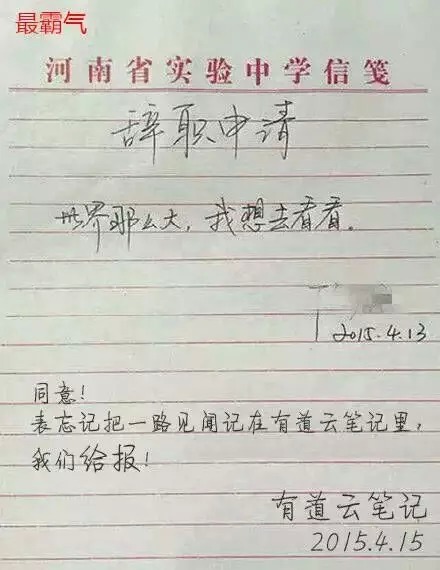 最霸气
河南省实验中学信笺
辞职申请
世界那么大，我想去看看.
2015.4.13
同意！
表忘记把一路见闻记在有道云笔记里，
我们给报！
有道云笔记
2015.4.15